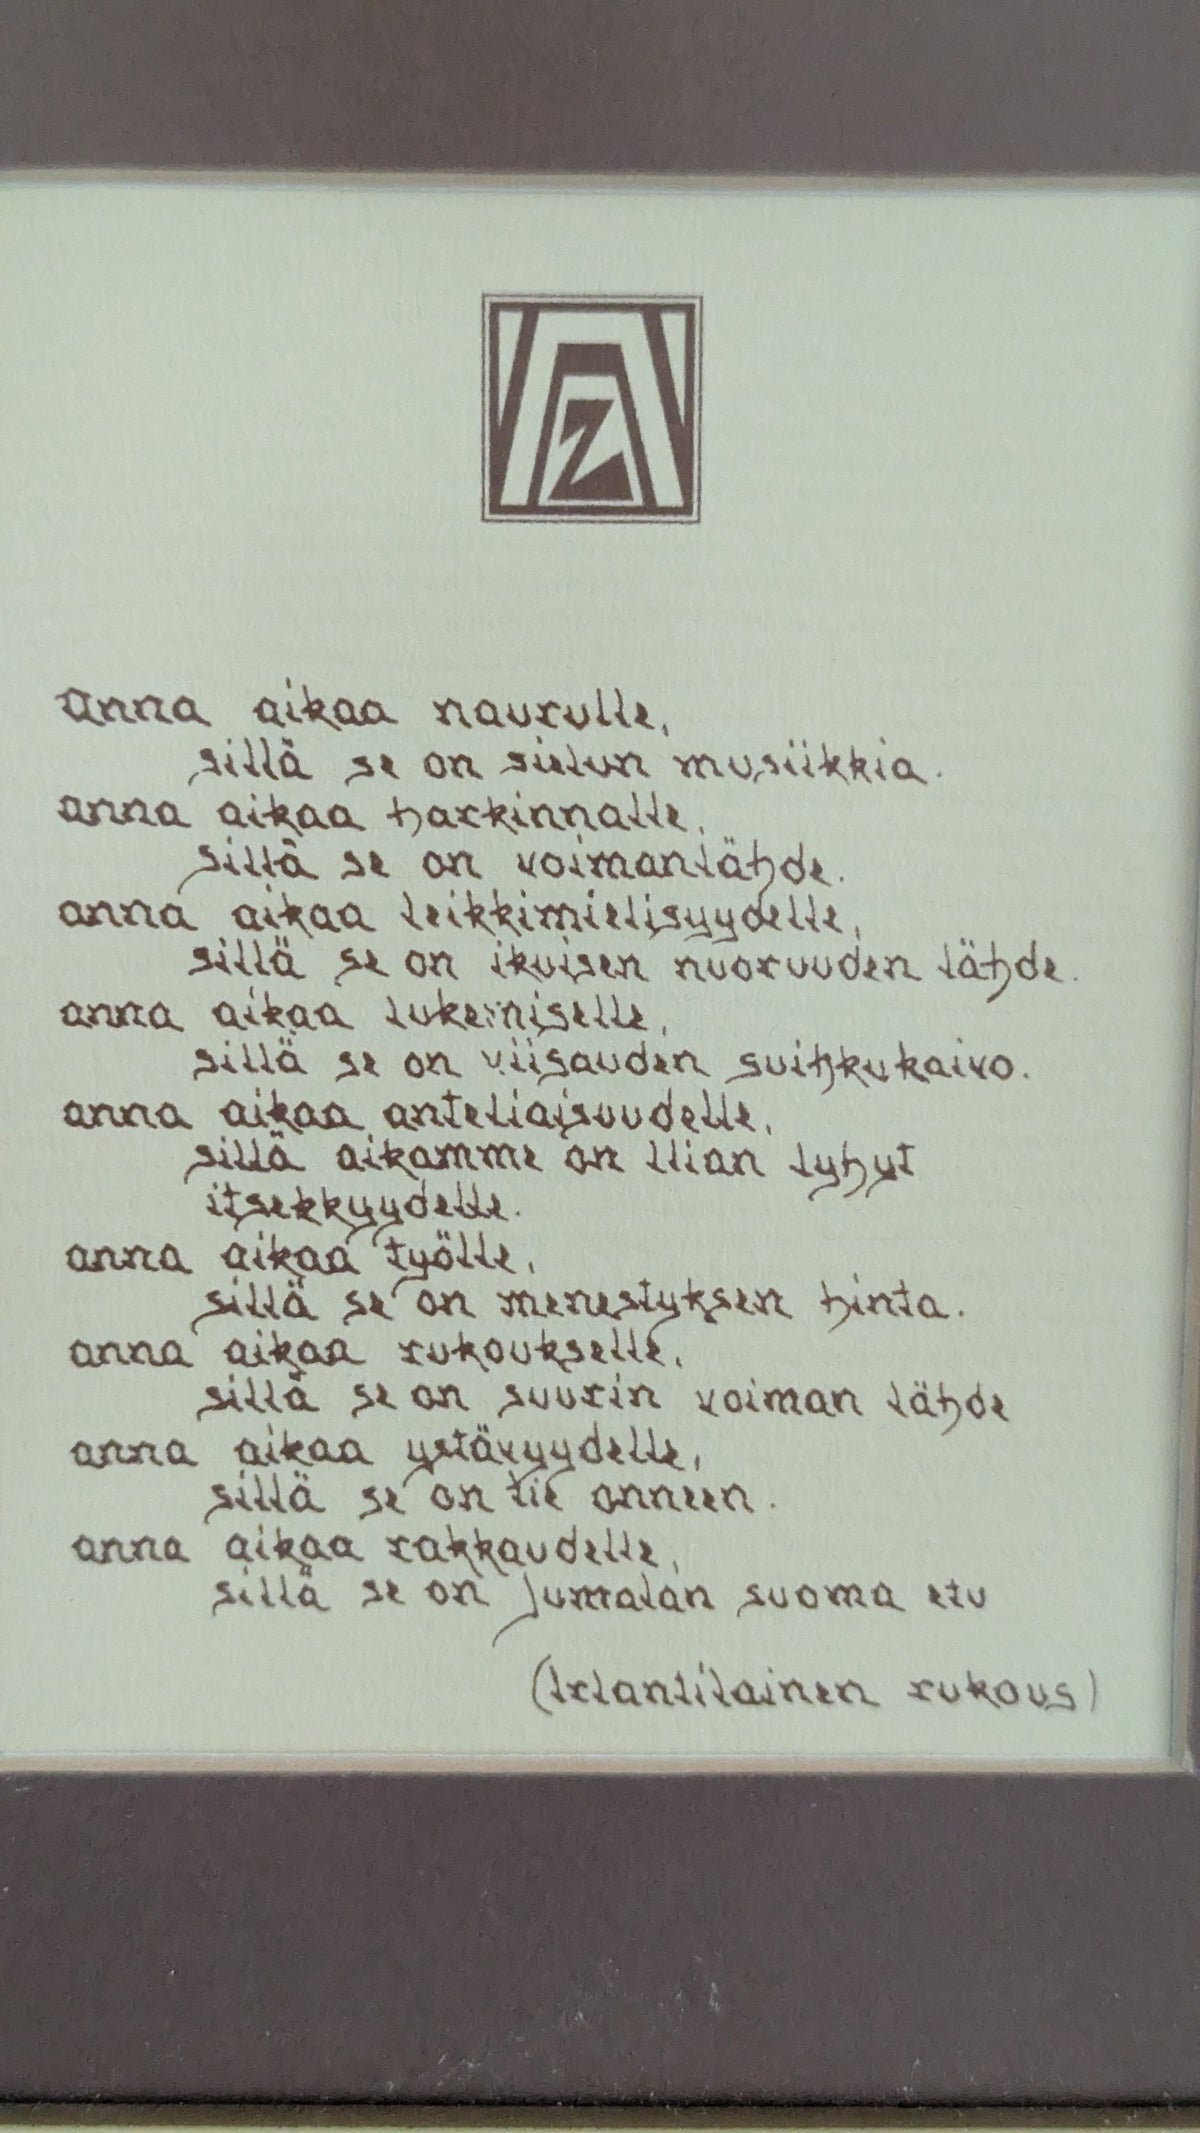 Anna aikaa naurulle,
sillä se on sielun musiikkia.
anna aikaa harkinnalle,
sillä se on voimanlähde.
anna aikaa leikkimielisyydelle,
sillä se on ikuisen nuoruuden lähde.
anna aikaa lukemiselle,
sillä se on viisauden suihkukaivo.
anna aikaa anteliaisuudelle,
sillä aikamme on liian lyhyt
itsekkyydelle.
anna aikaa työlle,
sillä se on menestyksen hinta.
anna aikaa rukoukselle,
sillä se on suurin voiman lähde
anna aikaa ystävyydelle,
sillä se on tie onneen.
anna aikaa rakkaudelle,
sillä se on Jumalan suoma etu
(Irlantilainen rukous)